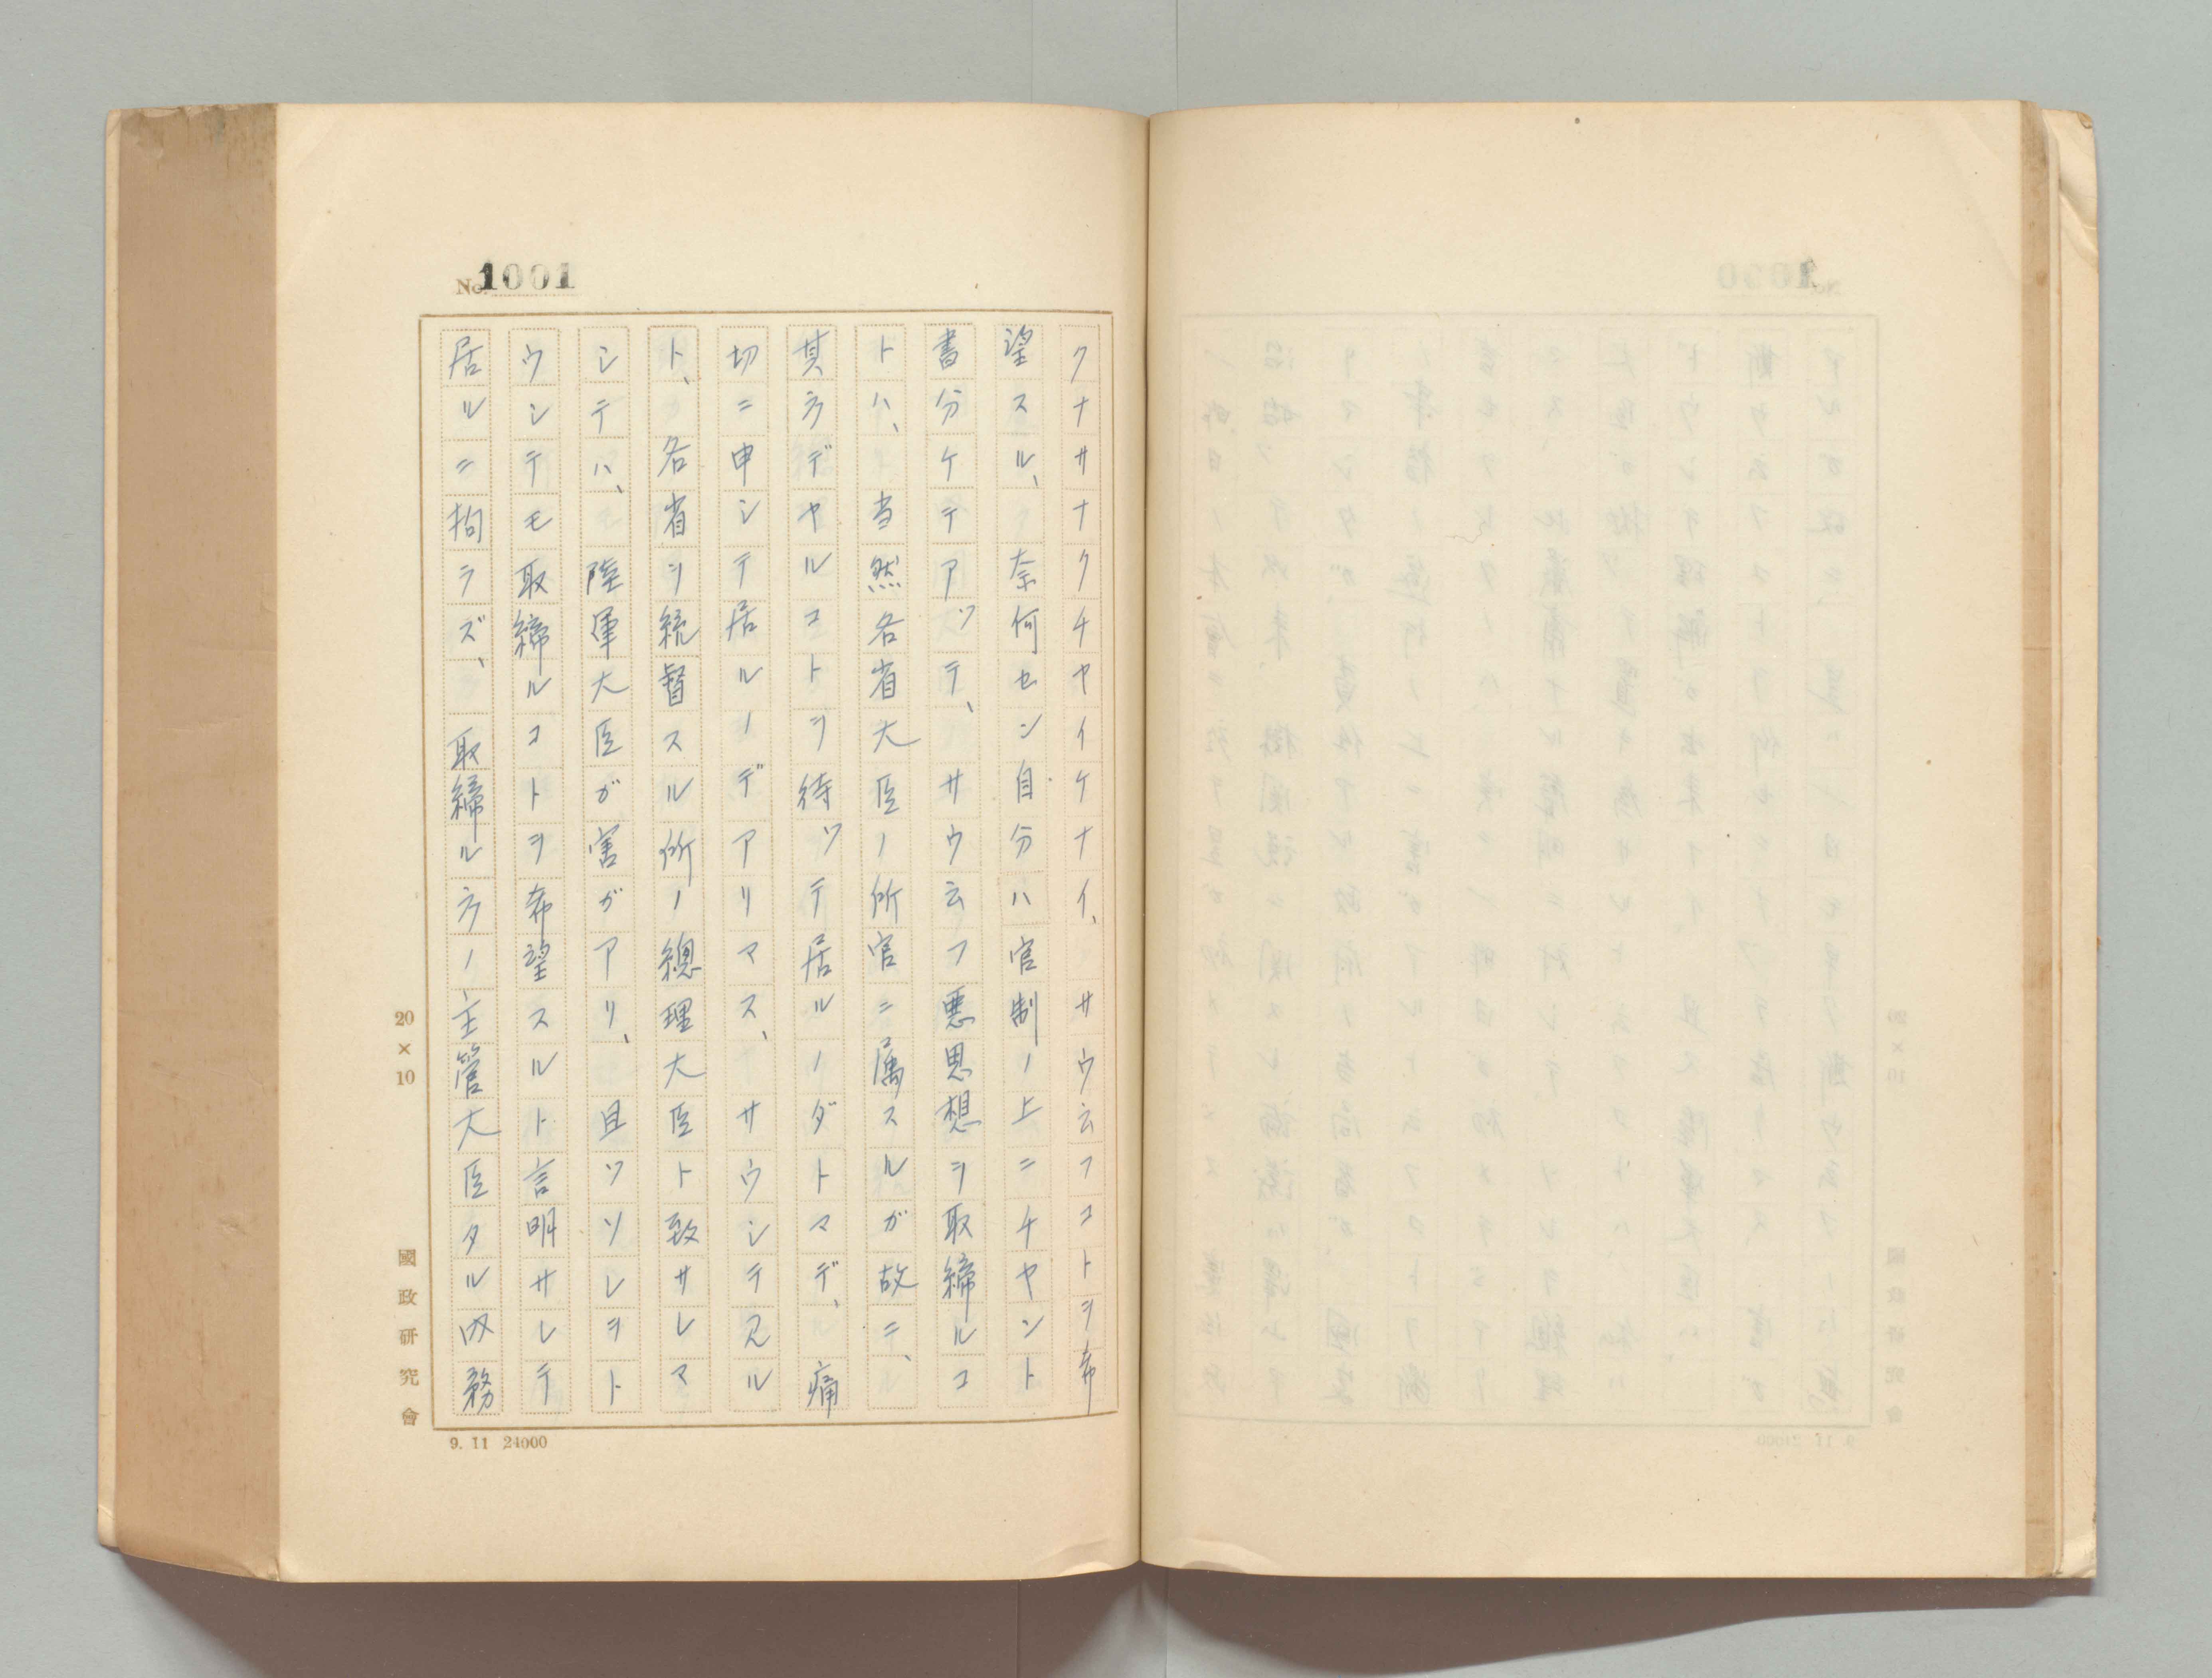 No. 1001
クナサナクチヤイケナイ、サウ云フコトヲ希
望スル、奈何セン自分ハ官制ノ上ニチヤント
書分ケテアツテ、サウ云フ悪思想ヲ取締ルコ
トハ、当然各省大臣ノ所官ニ属スルガ故ニ、
其方デヤルコトヲ待ツテ居ルノダトマデ、痛
切ニ申シテ居ルノデアリマス、サウシテ見ル
ト、各省ヲ統督スル所ノ總理大臣ト致サレマ
シテハ、陸軍大臣ガ害ガアリ、且ツソレヲト
ウシテモ取締ルコトヲ希望スルト言明サレテ
居ルニ拘ラズ、取締ル方ノ、主管大臣タル内務
20×10
國政研究會
9. 11 24000